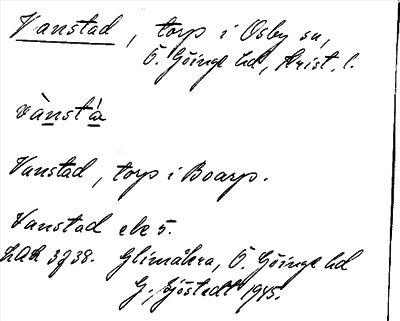 Vanstad, torp i Osby sn,
Ö. Göinge hd, Krist. l.
vànstá
Vanstad, torp i Boarp.
Vanstad ek 5.
LAL 3738. Glimåkra, Ö. Göinge hd
G. Sjöstedt 1945.